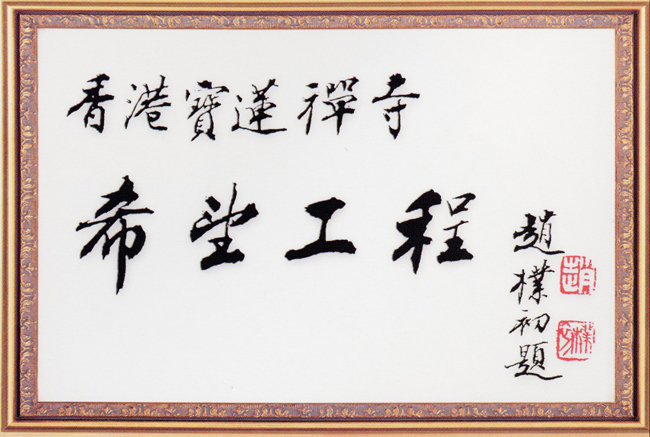 香港寶蓮禪寺
希望工程
趙樸初題
趙
樸初